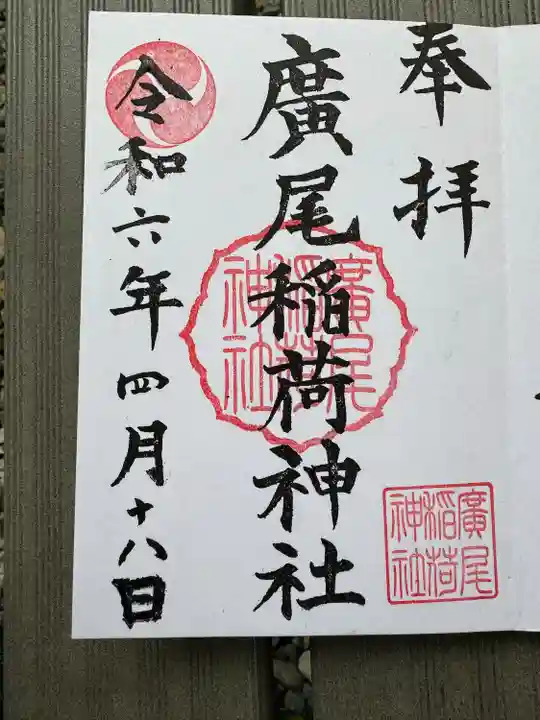 奉拝
廣尾稲荷神社
廣尾稲荷神社
廣尾稲荷神社
令和六年四月十八日